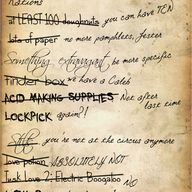 Rations
at LEAST 100 doughnuts you can have TEN
lots of paper no more pamphlets, Jester
Something extravagant be more specific
Tinder box we have a Caleb
ACID MAKING SUPPLIES Not after last time
LOCKPICK again?!
Stilts you're not at the circus anymore
love potion ABSOLUTELY NOT
Tusk Love 2: Electric Boogaloo NO